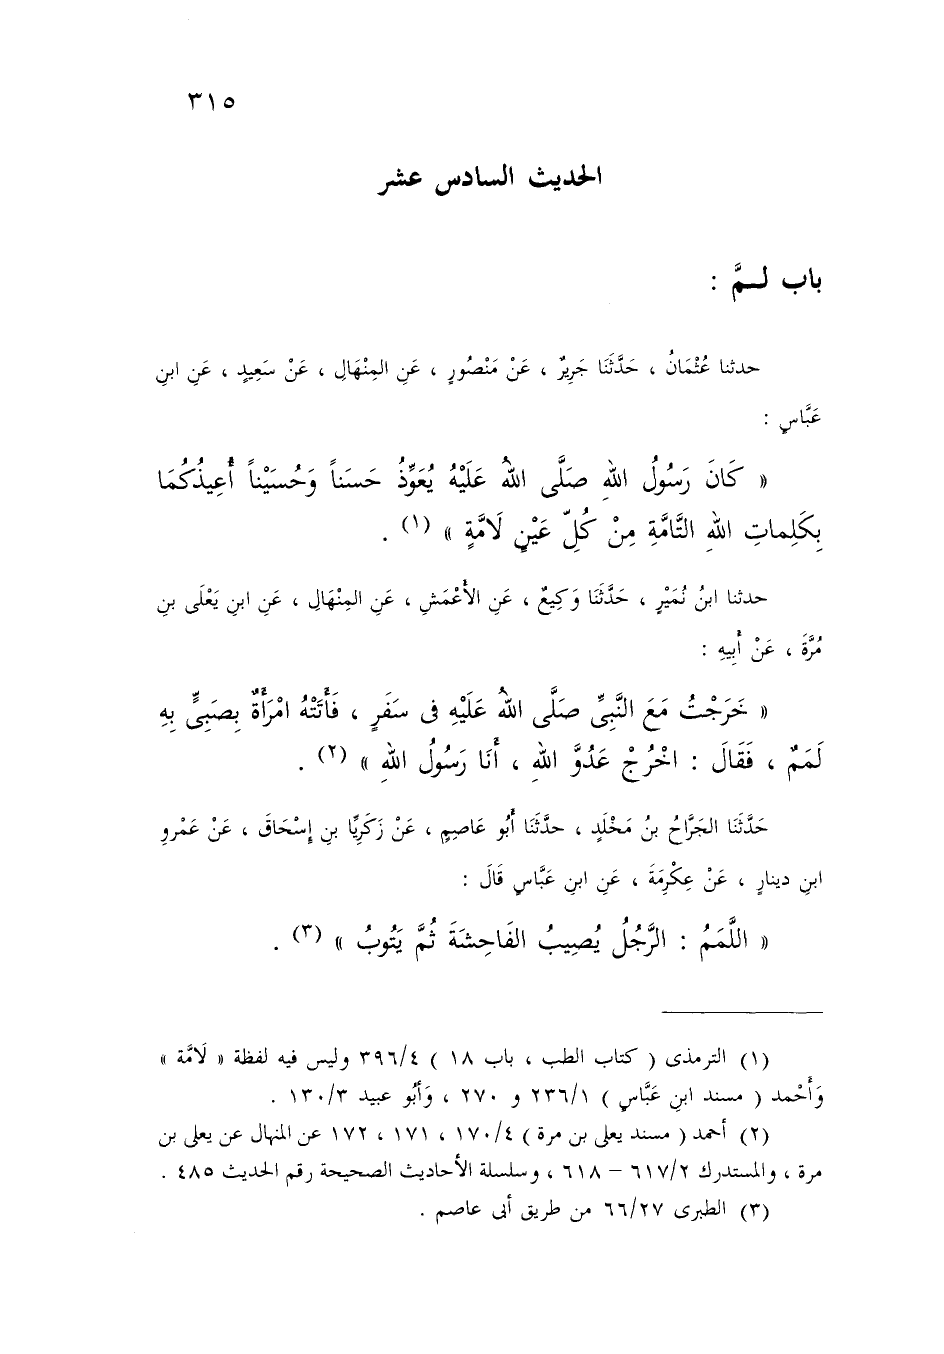 ٣١٥
الحديث السادس عشر
باب لــمَّ :
حدثنا عُثْمَانُ ، حَدَّثَنَا جَرِيرٌ ، عَنْ مَنْصُورٍ ، عَنِ المِنْهَالِ ، عَنْ سَعِيدٍ ، عَنِ ابنِ
عَبَّاسٍ :
« كَانَ رَسُولُ اللهِ صَلَّى اللهُ عَلَيْهِ يُعَوِّذُ حَسَناً وَحُسَيْناً أُعِيذُكُمَا
بِكَلِماتِ اللهِ التَّامَّةِ مِنْ كُلِّ عَيْنٍ لَامَّةٍ » (١) .
حدثنا ابنُ نُمَيْرٍ ، حَدَّثَنَا وَكِيعٌ ، عَنِ الأَعْمَشِ ، عَنِ المِنْهَالِ ، عَنِ ابنِ يَعْلَى بنِ
مُرَّةَ ، عَنْ أَبِيهِ :
« خَرَجْتُ مَعَ النَّبِىِّ صَلَّى اللهُ عَلَيْهِ فى سَفَرٍ ، فَأَتَتْهُ امْرَأَةٌ بِصَبِىٍّ بِهِ
لَمَمٌ ، فَقَالَ : اخْرُجْ عَدُوَّ اللهِ ، أَنَا رَسُولُ اللهِ » (٢) .
حَدَّثَنَا الجَرَّاحُ بنُ مَخْلَدٍ ، حدَّثَنَا أَبُو عَاصِمٍ ، عَنْ زَكَرِيَّا بنِ إِسْحَاقَ ، عَنْ عَمْرِو
ابنِ دينارٍ ، عَنْ عِكْرِمَةَ ، عَنِ ابنِ عَبَّاسٍ قَالَ :
« اللَّمَمُ : الرَّجُلُ يُصِيبُ الفَاحِشَةَ ثُمَّ يَتُوبُ » (٣) .
(١) الترمذى ( كتاب الطب ، باب ١٨ ) ٣٩٦/٤ وليس فيه لفظة « لَامَّة »
وَأَحْمد ( مسند ابنِ عَبَّاسٍ ) ٢٣٦/١ و ٢٧٠ ، وَأَبُو عبيد ١٣٠/٣ .
(٢) أحمد ( مسند يعلى بن مرة ) ١٧٠/٤ ، ١٧١ ، ١٧٢ عن المنهال عن يعلى بن
مرة ، والمستدرك ٦١٧/٢ – ٦١٨ ، وسلسلة الأحاديث الصحيحة رقم الحديث ٤٨٥ .
(٣) الطبرى ٦٦/٢٧ من طريق أبى عاصم .